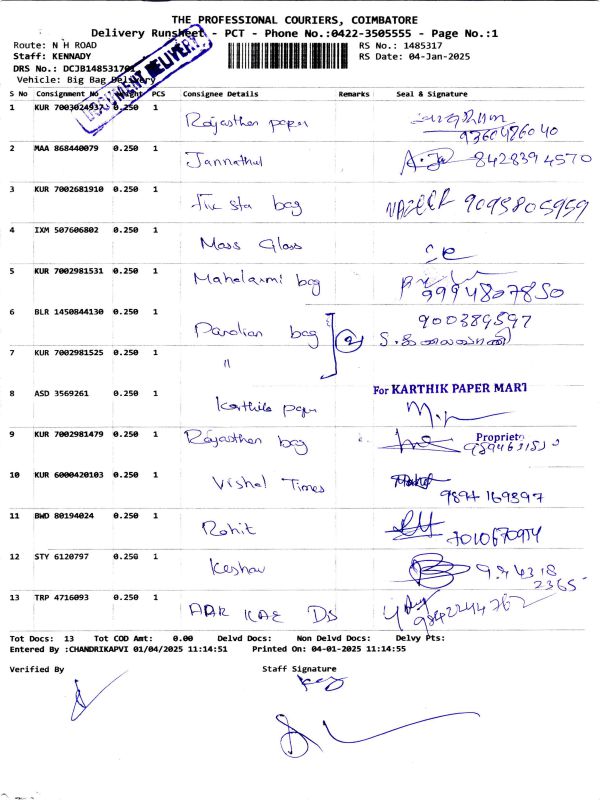 THE PROFESSIONAL COURIERS, COIMBATORE
Delivery Runsheet - PCT - Phone No.:0422-3505555 - Page No.:1
Route: N H ROAD RS No.: 1485317
Staff: KENNADY RS Date: 04-Jan-2025
DRS No.: DCJB1485317
Vehicle: Big Bag Delivery
DOCUMENT DELIVERY
S No Consignment No Weight PCS Consignee Details Remarks Seal & Signature
1 KUR 7003024937 0.250 1 Rajasthan paper 9360426040
2 MAA 868440079 0.250 1 Jannathul 8428394570
3 KUR 7002681910 0.250 1 The sta bag NAZEER 9095805959
4 IXM 507606802 0.250 1 Mass Glass
5 KUR 7002981531 0.250 1 Mahelaxmi bag 9994807850
6 BLR 1450844130 0.250 1 bag 2 900389597
7 KUR 7002981525 0.250 1 "
For KARTHIK PAPER MART
8 ASD 3569261 0.250 1 Karthik paper
Proprietor
9 KUR 7002981479 0.250 1 Rajasthan bag
10 KUR 6000420103 0.250 1 Vishal Times 9894169397
11 BWD 80194024 0.250 1 Rohit
12 STY 6120797 0.250 1 Keshav
13 TRP 4716093 0.250 1 DS 9842244762
Tot Docs: 13 Tot COD Amt: 0.00 Delvd Docs: Non Delvd Docs: Delvy Pts:
Entered By :CHANDRIKAPVI 01/04/2025 11:14:51 Printed On: 04-01-2025 11:14:55
Verified By Staff Signature